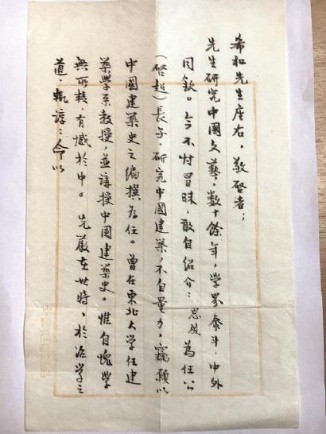 希和先生座右，敬启者；
先生研究中國文藝，數十餘年，学界泰斗，中外
同欽。今不忖冒昧，敢自绍介：思成為任公
(啓超)長子，研究中國建築，不自量力，竊願以
中國建築史之編撰為任。曾在東北大学任建
築学系教授，並講授中國建築史。惟自愧学
無所精，有憾於中。先嚴在世時，於治学之
道，執諄々命以